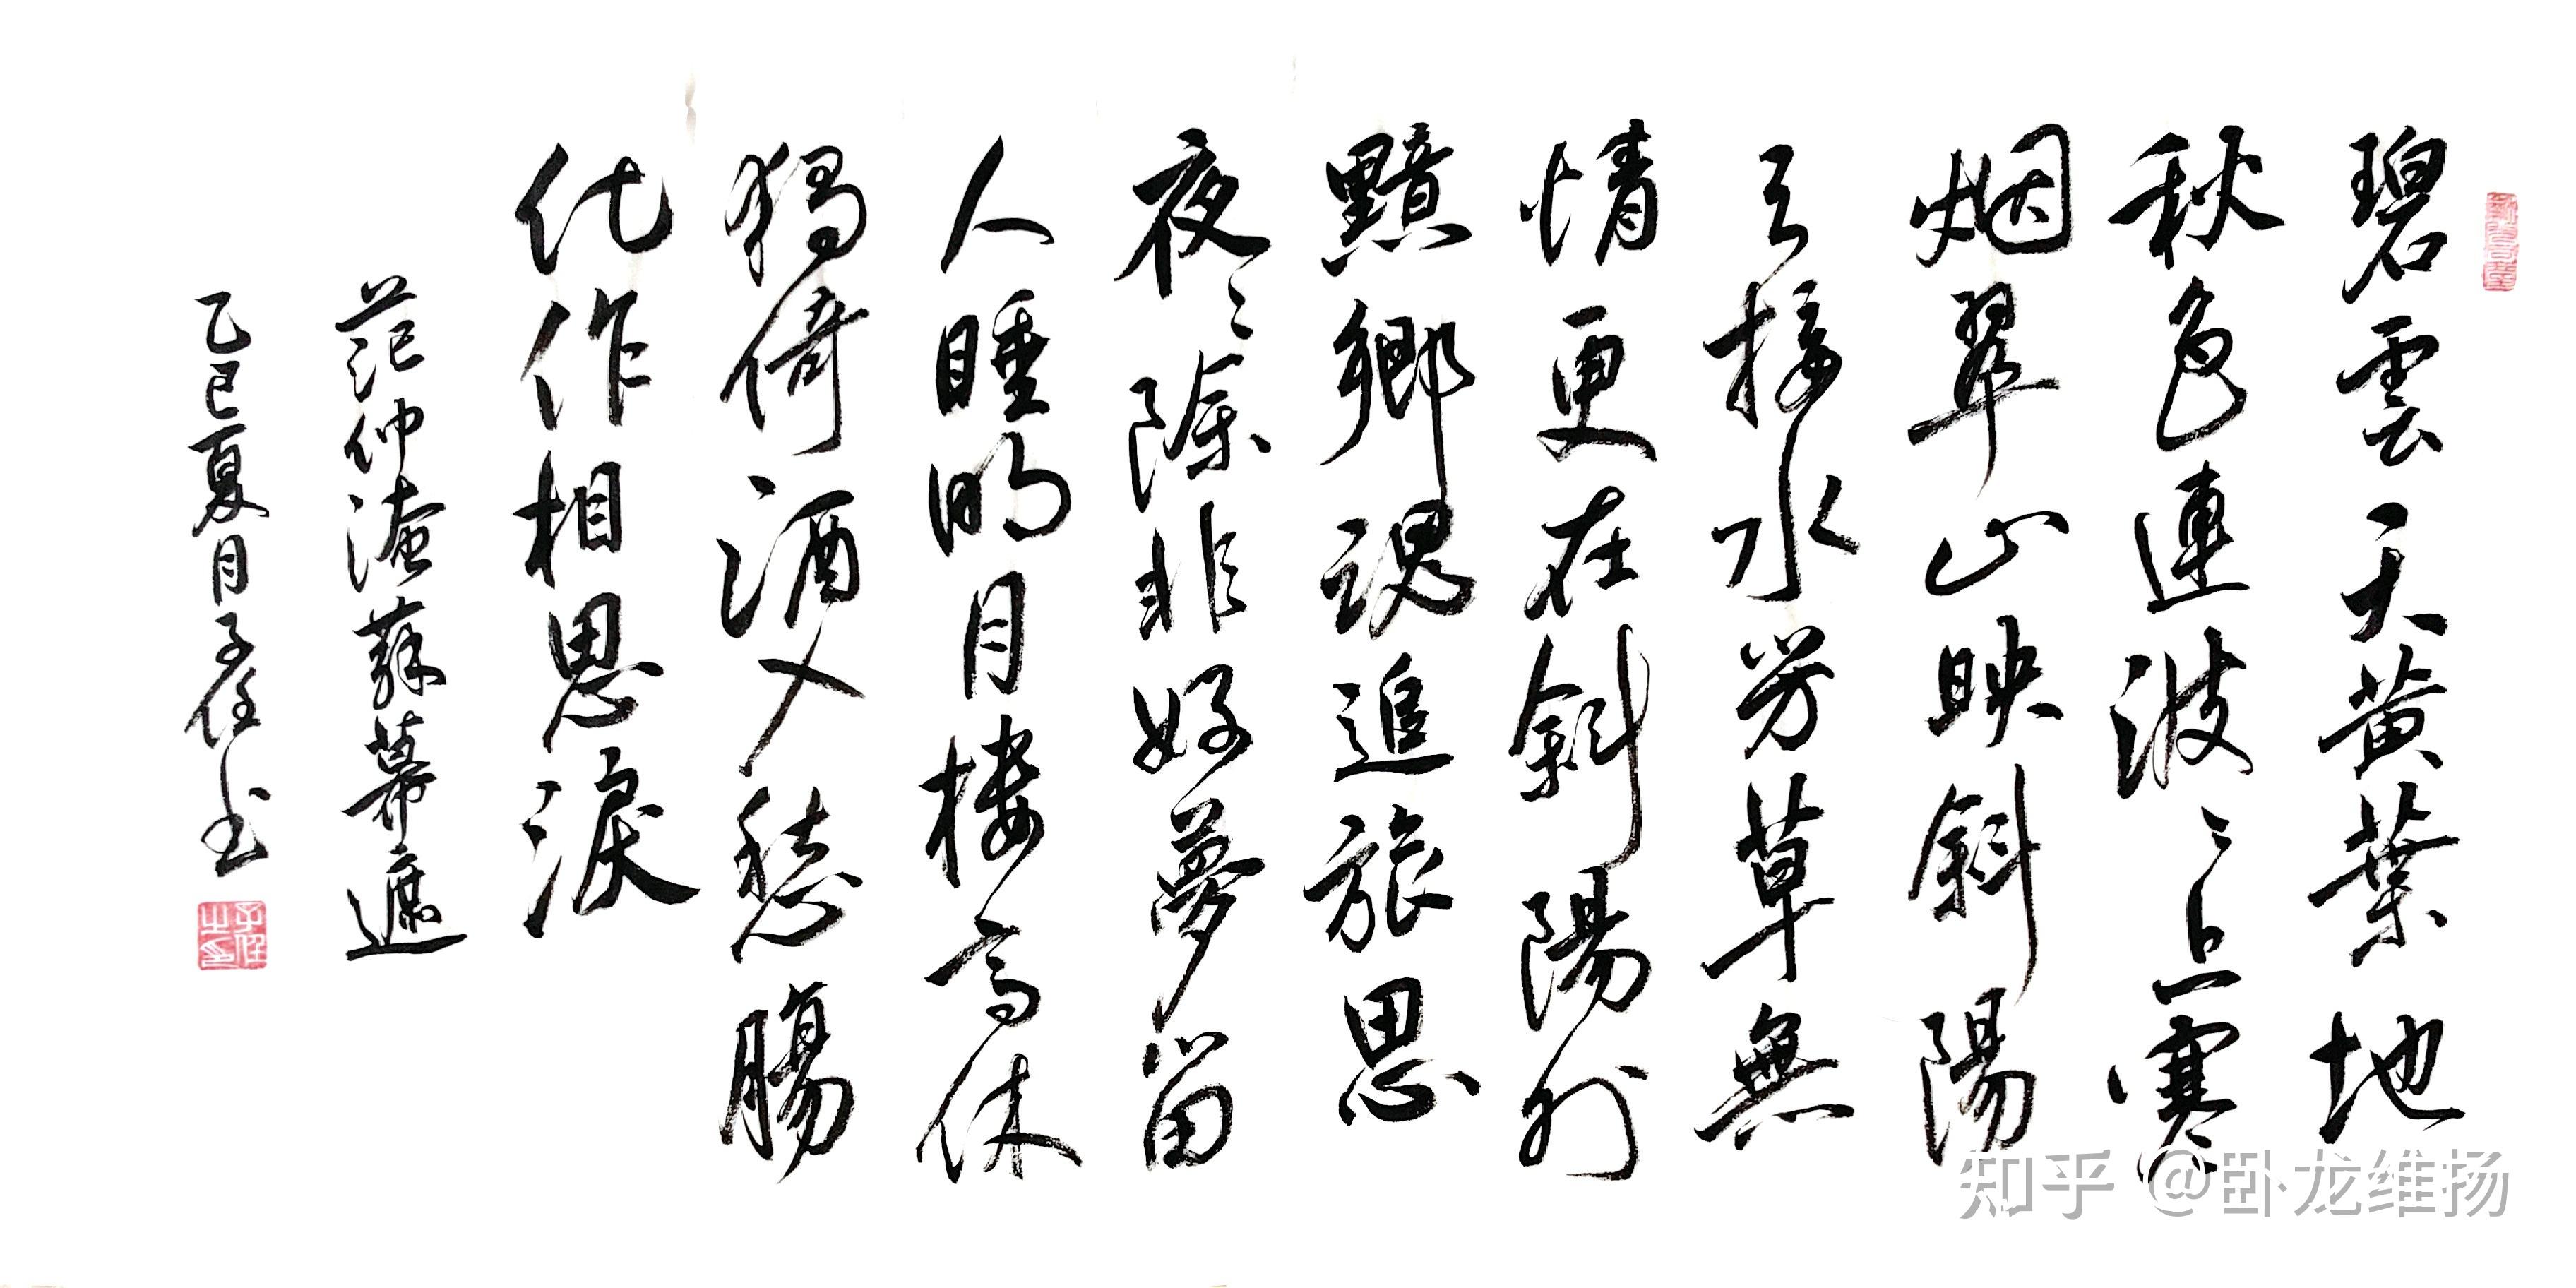 碧雲天黄葉地
秋色連波〻上寒
烟翠山映斜陽
天接水芳草無
情更在斜陽外
黯鄉魂追旅思
夜〻除非好夢留
人睡明月樓高休
獨倚酒入愁腸
化作相思淚
范仲淹蘇幕遮
乙巳夏月子任书
子任之印
知乎 @卧龙维扬